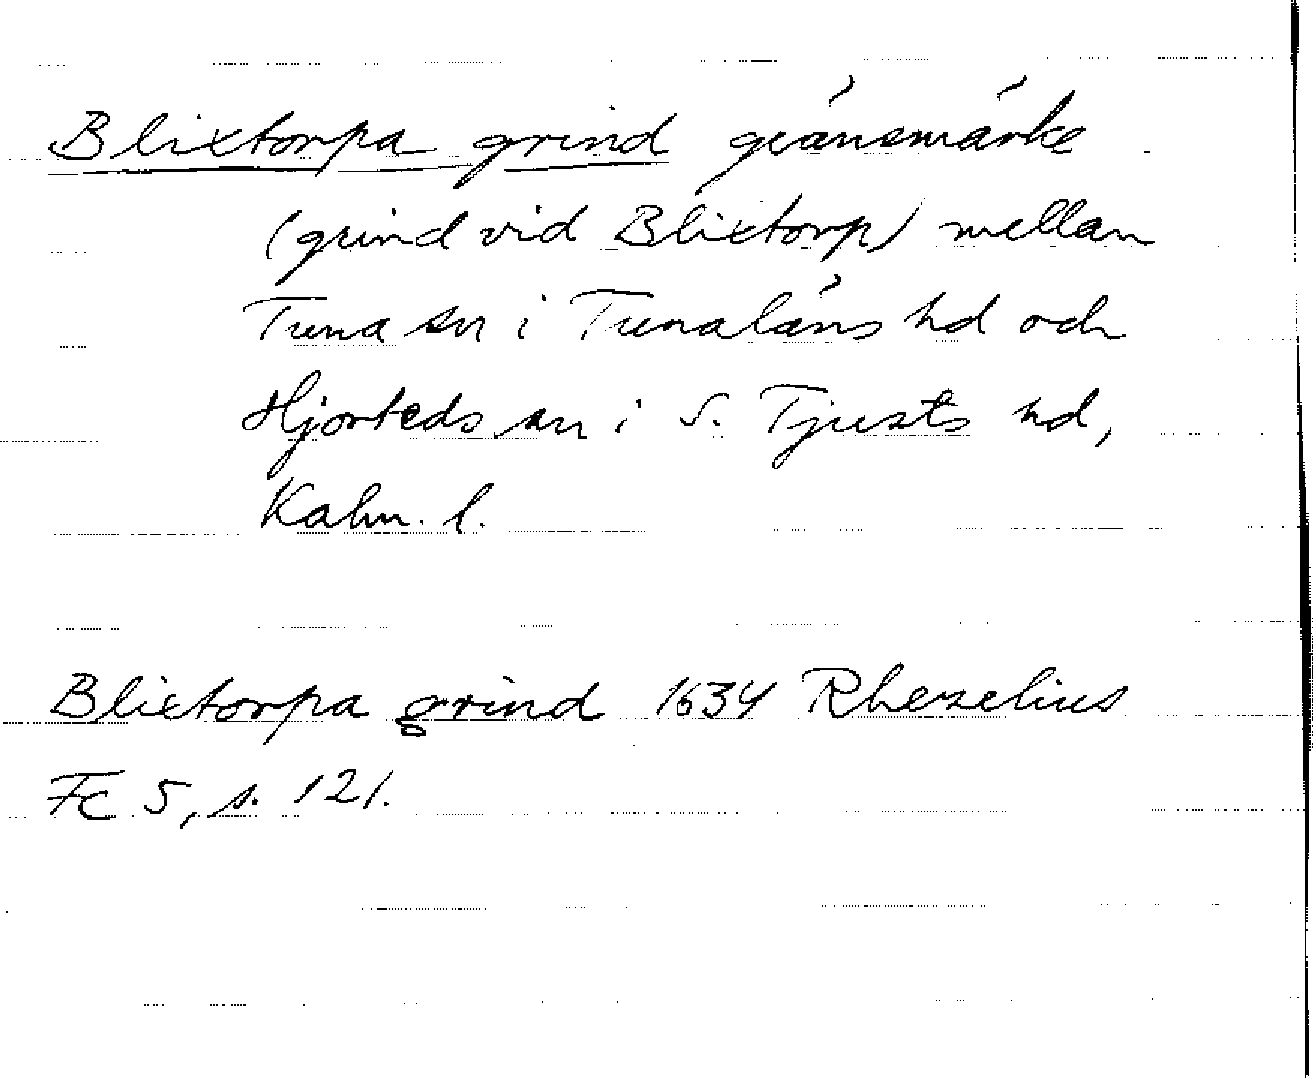 Blixtorpa grind gränsmärke
(grind vid Blixtorp) mellan
Tuna sn i Tunaläns hd och
Hjorteds sn i S. Tjusts hd,
Kalm. l.
Blixtorpa grind 1634 Rhezelius
Fc 5, s. 121.